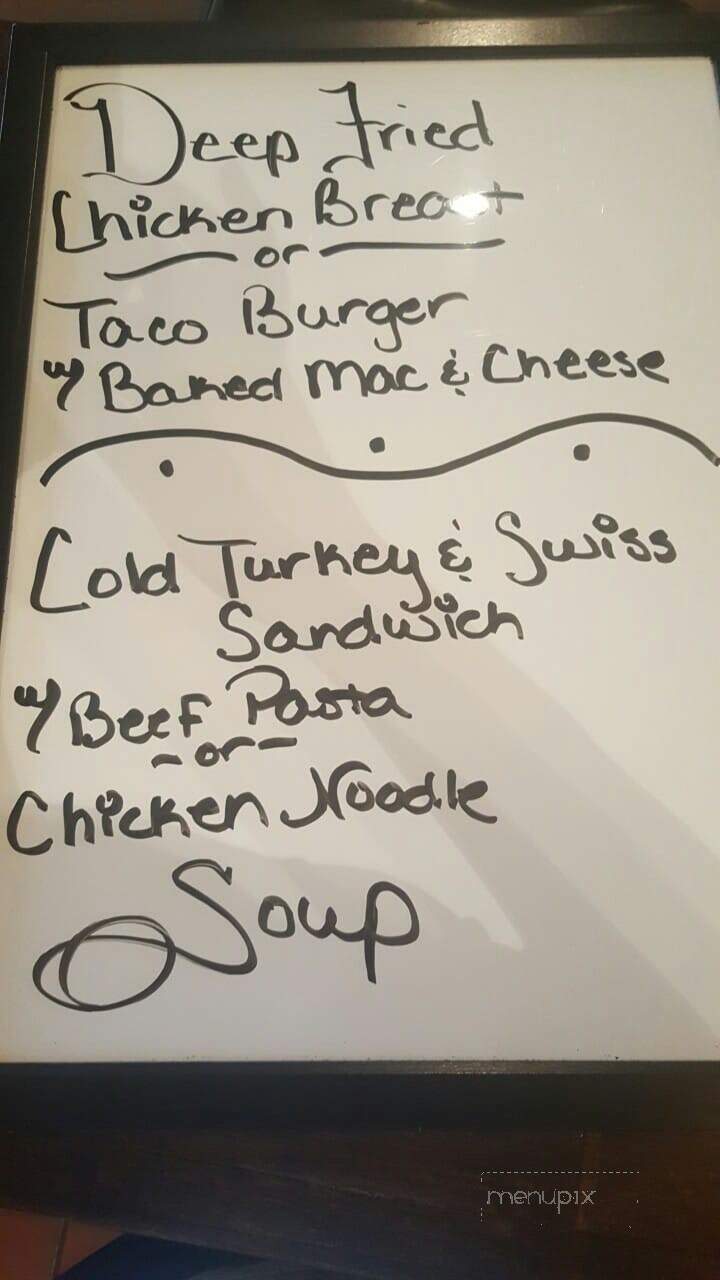 Deep Fried
Chicken Breast
or
Taco Burger
w/ Baked Mac & Cheese
Cold Turkey & Swiss
Sandwich
w/ Beef Pasta
-or-
Chicken Noodle
Soup
menupix